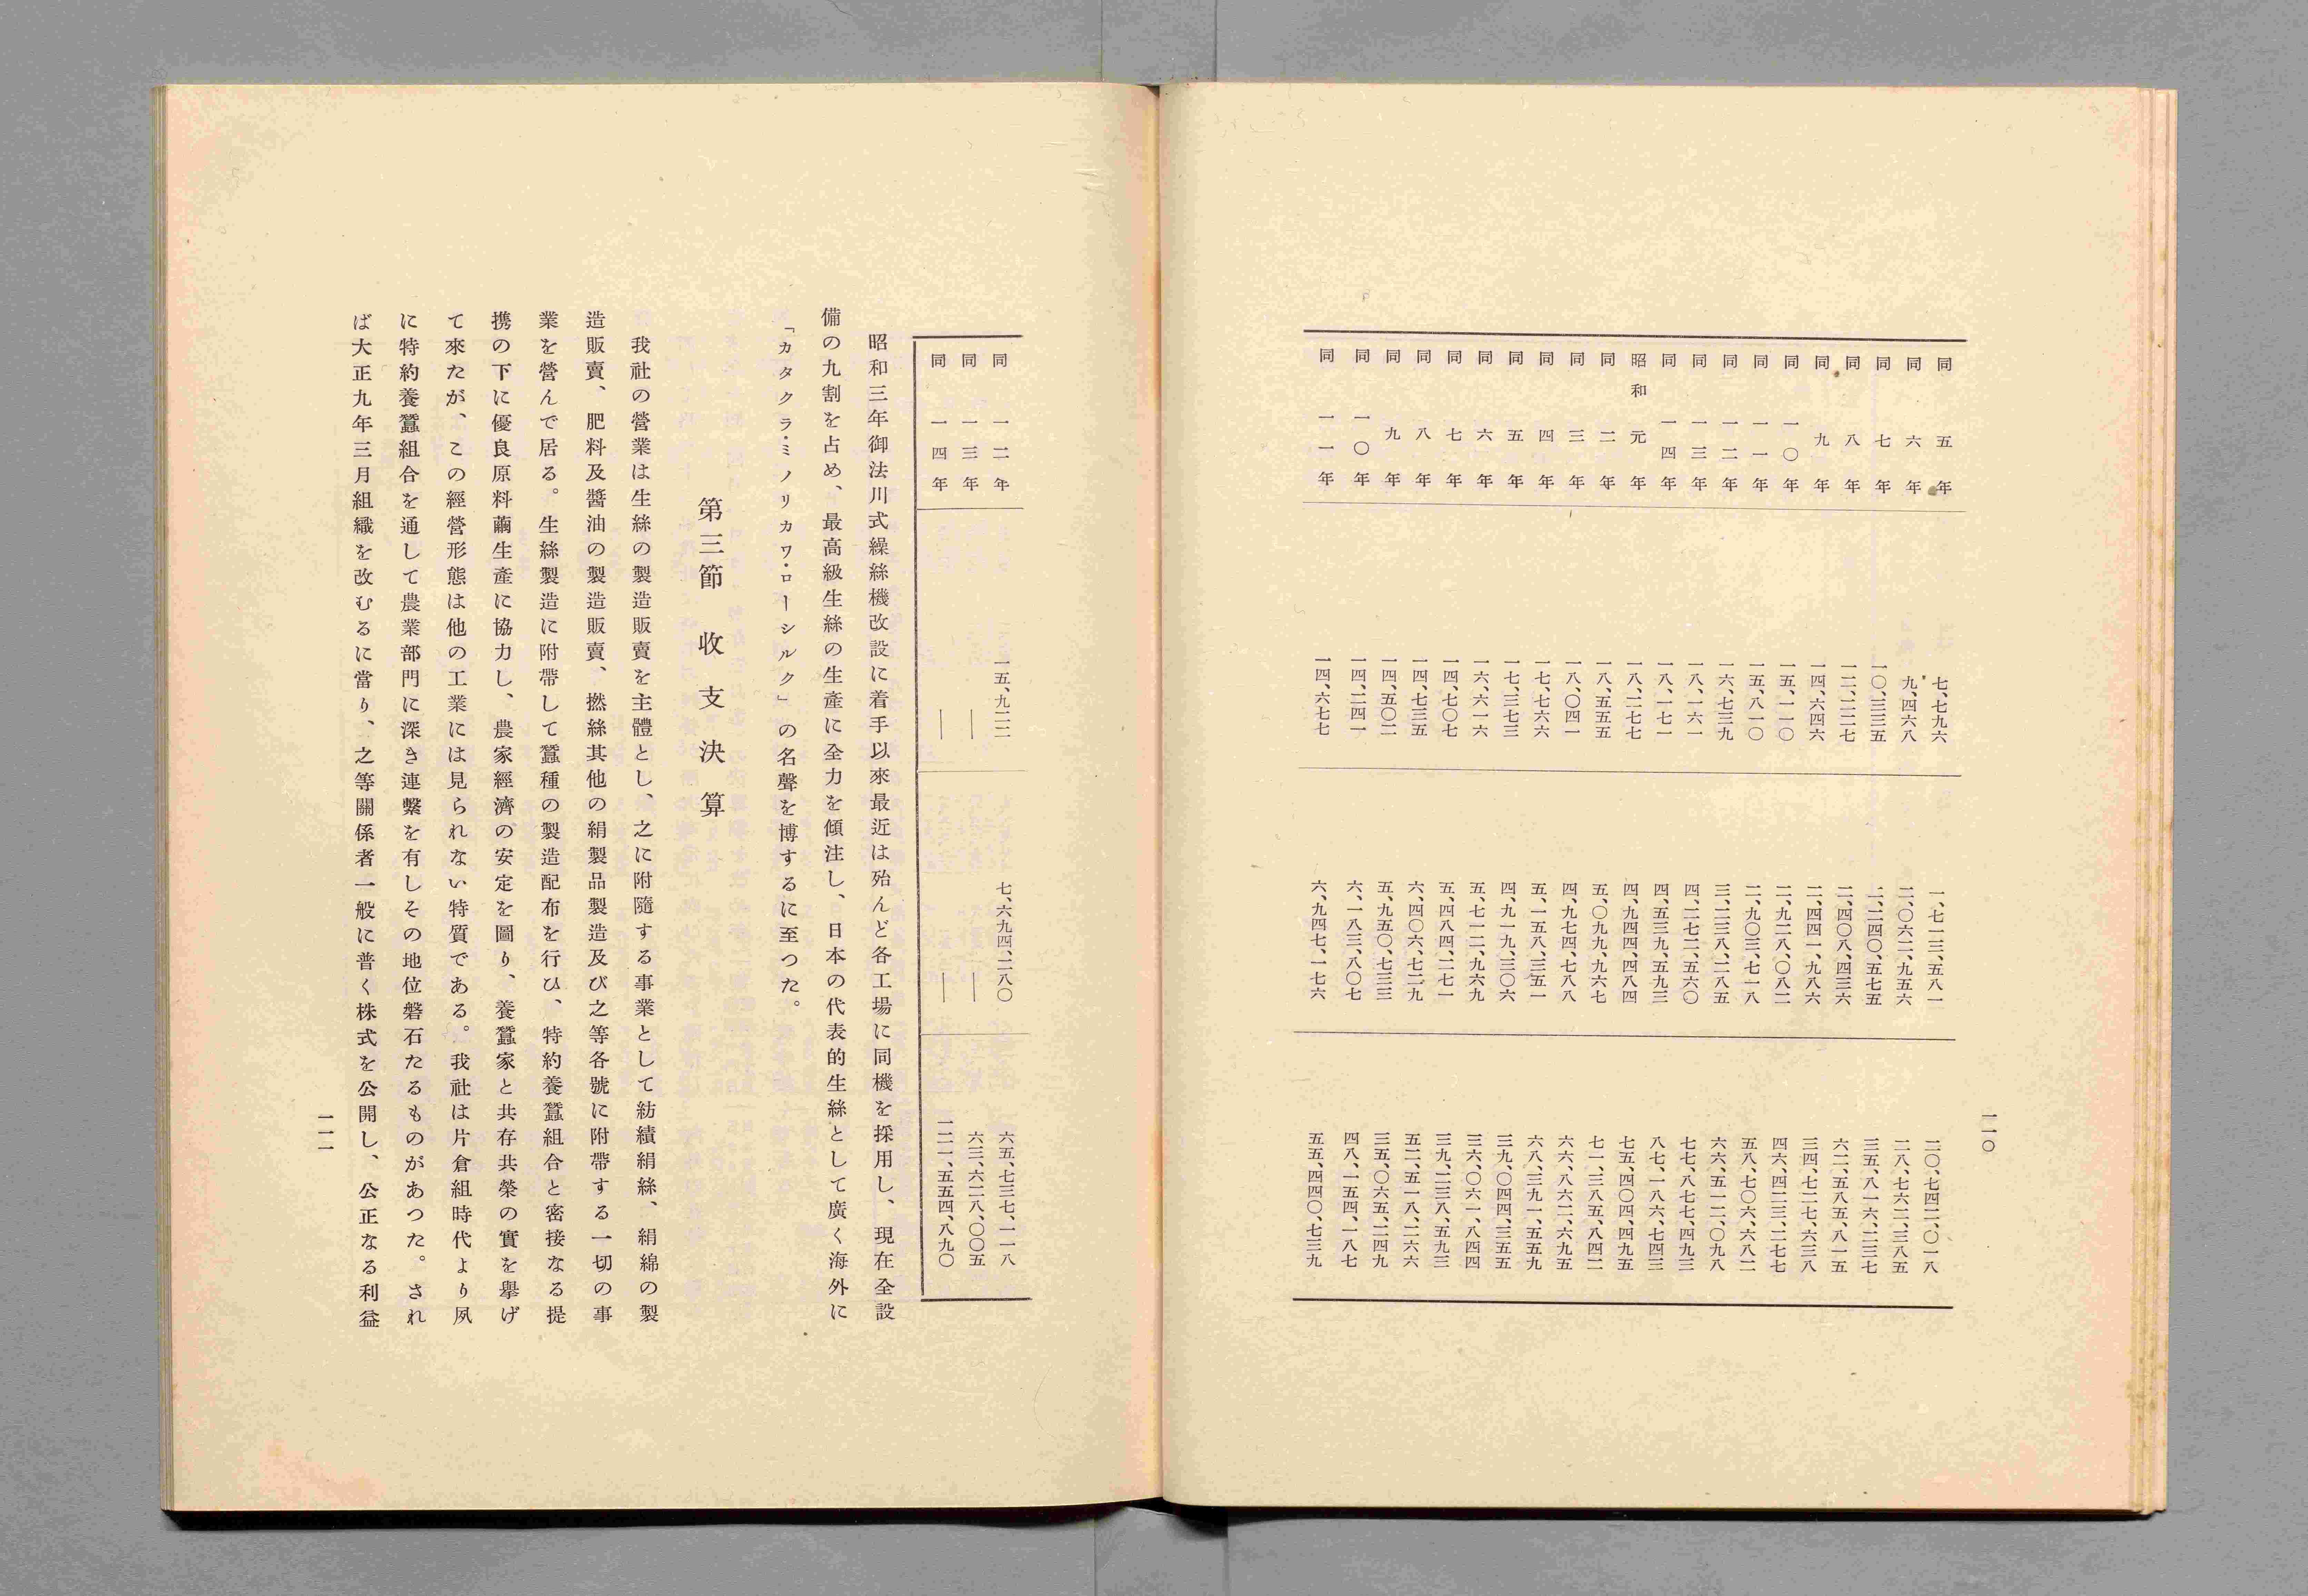 一一〇
同五年 七、七九六 一、七一三、五八一 二〇、七四二、〇一八
同六年 九、四六八 二、〇六二、九五六 二八、七六二、三八五
同七年 一〇、三三五 二、二四〇、五七五 三五、八一六、二三七
同八年 一二、二二七 二、四〇八、四三六 六二、五八五、八一五
同九年 一四、六四六 二、四四一、九八六 三四、七二七、六三八
同一〇年 一五、一一〇 二、九二八、〇八二 四六、四二三、二七七
同一一年 一五、八一〇 二、九〇三、七一八 五八、七〇六、六八二
同一二年 一六、七三九 三、二三八、二八五 六六、五一二、〇九八
同一三年 一八、一六一 四、二七二、五六〇 七七、八七七、四九三
同一四年 一八、一七一 四、五三九、五九三 八七、一八六、七四三
昭和元年 一八、二七七 四、九四四、四八四 七五、四〇四、四九五
同二年 一八、五五五 五、〇九九、九六七 七一、三八五、八四二
同三年 一八、〇四一 四、九七四、七八八 六六、八六二、六九五
同四年 一七、七六六 五、一五八、三五一 六八、三九一、五五九
同五年 一七、三七三 四、九一九、三〇六 三九、〇四四、三五五
同六年 一六、六一六 五、七一二、九六九 三六、〇六一、八四四
同七年 一四、七〇七 五、四八四、二七一 三九、二三八、五九三
同八年 一四、七三五 六、四〇六、七二九 五二、五一八、二六六
同九年 一四、五〇二 五、九五〇、七三三 三五、〇六五、二四九
同一〇年 一四、二四一 六、一八三、八〇七 四八、一五四、一八七
同一一年 一四、六七七 六、九四七、一七六 五五、四四〇、七三九
同一二年 一五、九二二 七、六九四、二八〇 六五、七三七、一一八
同一三年 ｜ ｜ 六三、六二八、〇〇五
同一四年 ｜ ｜ 一二一、五五四、八九〇
昭和三年御法川式繰絲機改設に着手以來最近は殆んど各工場に同機を採用し、現在全設
備の九割を占め、最高級生絲の生產に全力を傾注し、日本の代表的生絲として廣く海外に
「カタクラ・ミノリカワ・ローシルク」の名聲を博するに至つた。
第三節 收支決算
我社の營業は生絲の製造販賣を主體とし、之に附隨する事業として紡績絹絲、絹綿の製
造販賣、肥料及醬油の製造販賣、撚絲其他の絹製品製造及び之等各號に附帶する一切の事
業を營んで居る。生絲製造に附帶して蠶種の製造配布を行ひ、特約養蠶組合と密接なる提
携の下に優良原料繭生產に協力し、農家經濟の安定を圖り、養蠶家と共存共榮の實を擧げ
て來たが、この經營形態は他の工業には見られない特質である。我社は片倉組時代より夙
に特約養蠶組合を通して農業部門に深き連繫を有しその地位磐石たるものがあつた。され
ば大正九年三月組織を改むるに當り、之等關係者一般に普く株式を公開し、公正なる利益
一一一